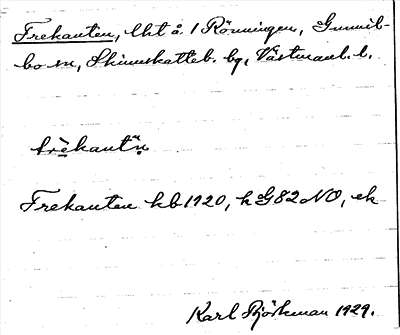 Trekanten, lht å 1 Rönningen, Gunnil-
bo sn, Skinnskatteb. bg, Västmanl. l.
trèkantn
Trekanten kb 1920, h G82 NO, ek
Karl Björkman 1929.